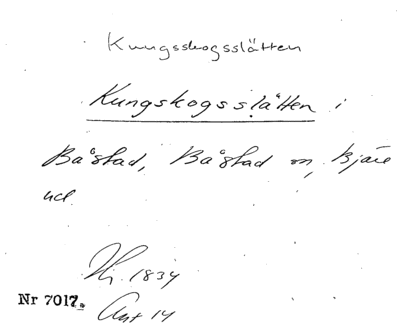 Kungsskogsslätten
Kungskogsslätten i
Båstad, Båstad sn, Bjäre
hd.
1834
Nr 7017.
Akt 14